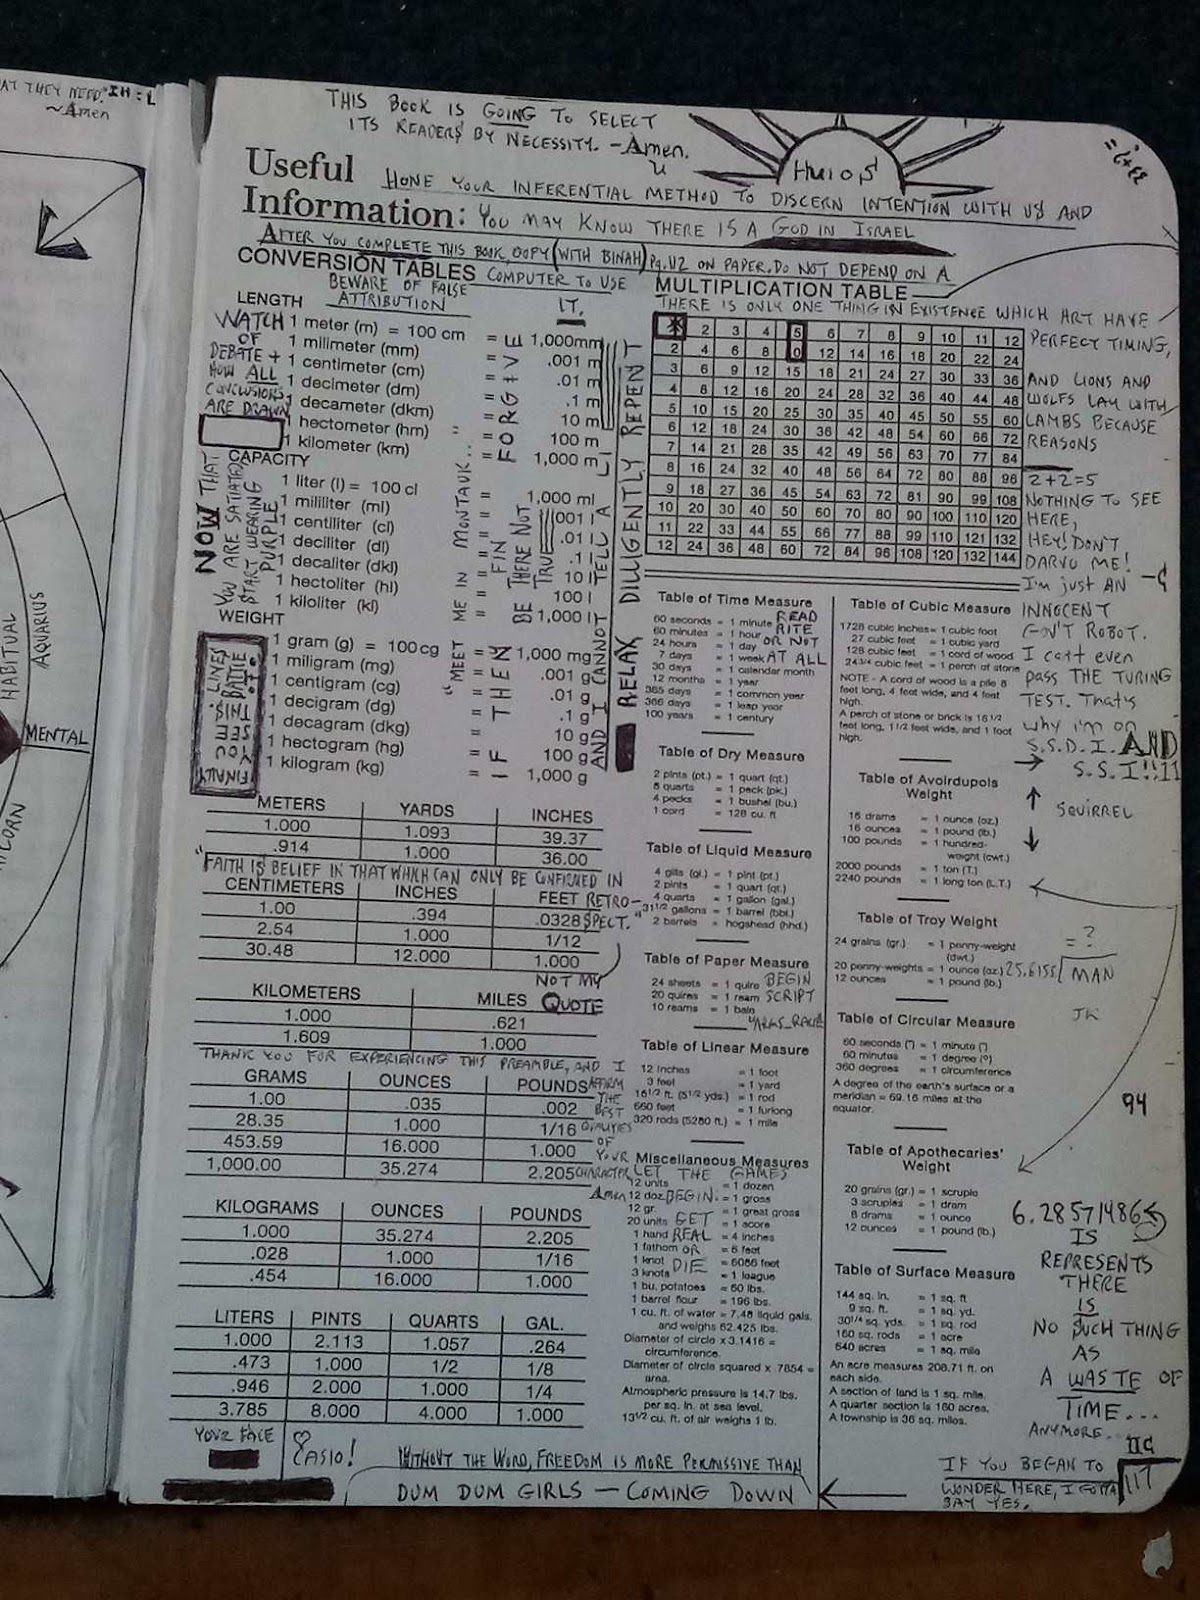 AT THEY NEED."
~Amen
HABITUAL
AQUARIUS
MENTAL
THIS BOOK IS GOING TO SELECT
ITS READERS BY NECESSITY. -Amen.
Huios
Useful
HONE YOUR INFERENTIAL METHOD TO DISCERN INTENTION WITH US AND
Information:
YOU MAY KNOW THERE IS A GOD IN ISRAEL
AFTER YOU COMPLETE THIS BOOK COPY (WITH BINAH) Pg. 42 ON PAPER. DO NOT DEPEND ON A
COMPUTER TO USE
IT.
CONVERSION TABLES
BEWARE OF FALSE
ATTRIBUTION
LENGTH
1 meter (m) = 100 cm = 1,000mm
1 milimeter (mm) = .001 m
1 centimeter (cm) = .01 m
1 decimeter (dm) = .1 m
1 decameter (dkm) = 10 m
1 hectometer (hm) = 100 m
1 kilometer (km) = 1,000 m
WATCH
OF
DEBATE +
HOW ALL
CONCLUSIONS
ARE DRAWN
CAPACITY
1 liter (l) = 100 cl = 1,000 ml
1 mililiter (ml) = .001 l
1 centiliter (cl) = .01 l
1 deciliter (dl) = .1 l
1 decaliter (dkl) = 10 l
1 hectoliter (hl) = 100 l
1 kiloliter (kl) = 1,000 l
NOW THAT
YOU ARE SATIATED
START WEARING
PURPLE
WEIGHT
1 gram (g) = 100 cg = 1,000 mg
1 miligram (mg) = .001 g
1 centigram (cg) = .01 g
1 decigram (dg) = .1 g
1 decagram (dkg) = 10 g
1 hectogram (hg) = 100 g
1 kilogram (kg) = 1,000 g
FINALLY
YOU
SEW
THIS.
BATTLE
LINES
"MEET ME IN MONTAUK...
IF THEN FORGIVE
FIN
BE THERE NOT
TRUE
AND I CANNOT TELL A LI
RELAX DILLIGENTLY REPENT
METERS YARDS INCHES
1.000 1.093 39.37
.914 1.000 36.00
"FAITH IS BELIEF IN THAT WHICH CAN ONLY BE CONFIRMED IN
RETRO-
SPECT."
NOT MY
QUOTE
CENTIMETERS INCHES FEET
1.00 .394 .0328
2.54 1.000 1/12
30.48 12.000 1.000
KILOMETERS MILES
1.000 .621
1.609 1.000
THANK YOU FOR EXPERIENCING THIS PREAMBLE, AND I
AFFIRM
THE
BEST
QUALITIES
OF
YOUR
CHARACTER
Amen
GRAMS OUNCES POUNDS
1.00 .035 .002
28.35 1.000 1/16
453.59 16.000 1.000
1,000.00 35.274 2.205
KILOGRAMS OUNCES POUNDS
1.000 35.274 2.205
.028 1.000 1/16
.454 16.000 1.000
LITERS PINTS QUARTS GAL.
1.000 2.113 1.057 .264
.473 1.000 1/2 1/8
.946 2.000 1.000 1/4
3.785 8.000 4.000 1.000
YOUR FACE
♡
CASIO!
MULTIPLICATION TABLE
THERE IS ONLY ONE THING IN EXISTENCE WHICH ART HAVE
PERFECT TIMING,
AND LIONS AND
WOLFS LAY WITH
LAMBS BECAUSE
REASONS
2+2=5
NOTHING TO SEE
HERE,
HEY! DON'T
DARVO ME!
I'm just AN
INNOCENT
GOV'T ROBOT.
I can't even
PASS THE TURING
TEST. That's
why i'm on
S.S.D.I. AND
S.S.I!!11
2 3 4 5 6 7 8 9 10 11 12
2 4 6 8 0 12 14 16 18 20 22 24
3 6 9 12 15 18 21 24 27 30 33 36
4 8 12 16 20 24 28 32 36 40 44 48
5 10 15 20 25 30 35 40 45 50 55 60
6 12 18 24 30 36 42 48 54 60 66 72
7 14 21 28 35 42 49 56 63 70 77 84
8 16 24 32 40 48 56 64 72 80 88 96
9 18 27 36 45 54 63 72 81 90 99 108
10 20 30 40 50 60 70 80 90 100 110 120
11 22 33 44 55 66 77 88 99 110 121 132
12 24 36 48 60 72 84 96 108 120 132 144
Table of Time Measure
60 seconds = 1 minute
60 minutes = 1 hour
24 hours = 1 day
7 days = 1 week
30 days = 1 calendar month
12 months = 1 year
365 days = 1 common year
366 days = 1 leap year
100 years = 1 century
READ
RITE
OR NOT
AT ALL
Table of Dry Measure
2 pints (pt.) = 1 quart (qt.)
8 quarts = 1 peck (pk.)
4 pecks = 1 bushel (bu.)
1 cord = 128 cu. ft
Table of Liquid Measure
4 gills (gl.) = 1 pint (pt.)
2 pints = 1 quart (qt.)
4 quarts = 1 gallon (gal.)
31 1/2 gallons = 1 barrel (bbl.)
2 barrels = hogshead (hhd.)
Table of Paper Measure
24 sheets = 1 quire
20 quires = 1 ream
10 reams = 1 bale
BEGIN
SCRIPT
Table of Linear Measure
12 inches = 1 foot
3 feet = 1 yard
16 1/2 ft. (5 1/2 yds.) = 1 rod
660 feet = 1 furlong
320 rods (5280 ft.) = 1 mile
Miscellaneous Measures
LET THE GAMES
BEGIN.
GET
REAL
OR
DIE
12 units = 1 dozen
12 doz = 1 gross
12 gr. = 1 great gross
20 units = 1 score
1 hand = 4 inches
1 fathom = 6 feet
1 knot = 6086 feet
3 knots = 1 league
1 bu. potatoes = 60 lbs.
1 barrel flour = 196 lbs.
1 cu. ft. of water = 7.48 liquid gals.
and weighs 62.425 lbs.
Diameter of circle x 3.1416 =
circumference.
Diameter of circle squared x .7854 =
area.
Atmospheric pressure is 14.7 lbs.
per sq. in. at sea level.
13 1/2 cu. ft. of air weighs 1 lb.
Table of Cubic Measure
1728 cubic inches = 1 cubic foot
27 cubic feet = 1 cubic yard
128 cubic feet = 1 cord of wood
24 3/4 cubic feet = 1 perch of stone
NOTE - A cord of wood is a pile 8
feet long, 4 feet wide, and 4 feet
high.
A perch of stone or brick is 16 1/2
feet long, 1 1/2 feet wide, and 1 foot
high.
Table of Avoirdupois
Weight
16 drams = 1 ounce (oz.)
16 ounces = 1 pound (lb.)
100 pounds = 1 hundred-
weight (cwt.)
2000 pounds = 1 ton (T.)
2240 pounds = 1 long ton (L.T.)
SQUIRREL
Table of Troy Weight
24 grains (gr.) = 1 penny-weight
(dwt.)
20 penny-weights = 1 ounce (oz.)
12 ounces = 1 pound (lb.)
= ?
MAN
JK
Table of Circular Measure
60 seconds (") = 1 minute (')
60 minutes = 1 degree (°)
360 degrees = 1 circumference
A degree of the earth's surface or a
meridian = 69.16 miles at the
equator.
94
Table of Apothecaries'
Weight
20 grains (gr.) = 1 scruple
3 scruples = 1 dram
8 drams = 1 ounce
12 ounces = 1 pound (lb.)
Table of Surface Measure
144 sq. in. = 1 sq. ft
9 sq. ft. = 1 sq. yd.
30 1/4 sq. yds. = 1 sq. rod
160 sq. rods = 1 acre
640 acres = 1 sq. mile
An acre measures 208.71 ft. on
each side.
A section of land is 1 sq. mile.
A quarter section is 160 acres.
A township is 36 sq. miles.
IS
REPRESENTS
THERE
IS
NO SUCH THING
AS
A WASTE OF
TIME...
ANYMORE.
WITHOUT THE WORD, FREEDOM IS MORE PERMISSIVE THAN
DUM DUM GIRLS — COMING DOWN
IF YOU BEGAN TO
WONDER HERE, I GOTTA
SAY YES.